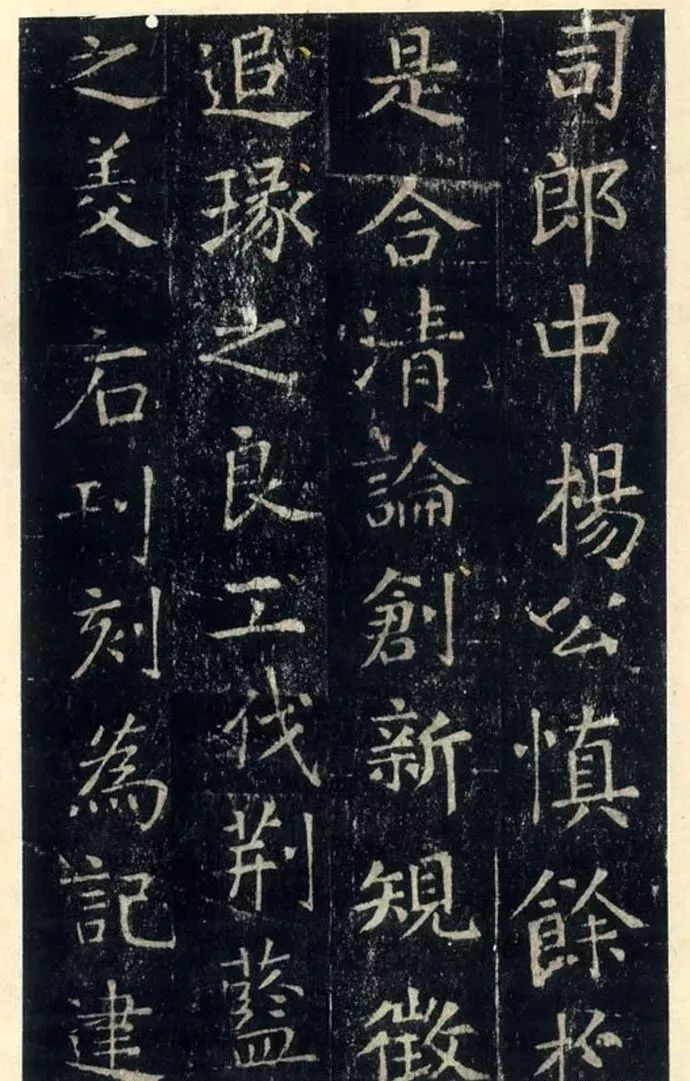 司郎中楊公慎餘於
是合清論創新規徵
追琢之良工伐荆藍
之羙石刊刻為記建